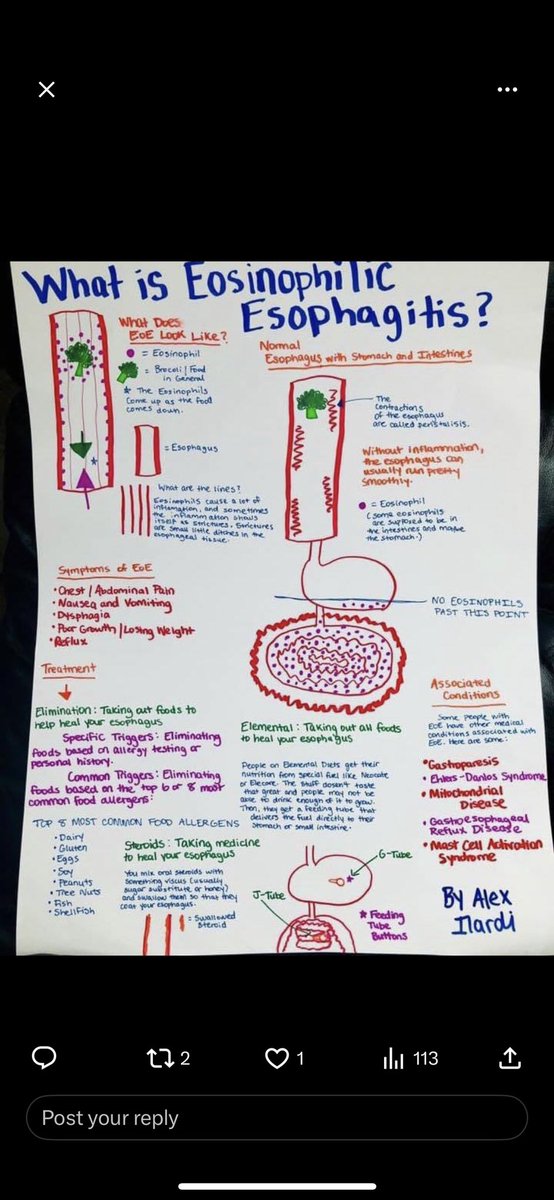 What is Eosinophilic
Esophagitis?
What Does
EoE Look Like?
= Eosinophil
= Brocoli / Food
in General
* The Eosinophils
come up as the food
comes down.
= Esophagus
What are the lines?
Eosinophils cause a lot of
inflamation, and sometimes
the inflammation shows
itself as strictures. Strictures
are small little ditches in the
esophageal tissue.
Normal
Esophagus with Stomach and Intestines
The
contractions
of the esophagus
are called peristalisis.
Without inflammation,
the esophagus can
usually run pretty
smoothly.
= Eosinophil
(some eosinophils
are supposed to be in
the intestines and maybe
the stomach.)
NO EOSINOPHILS
PAST THIS POINT
Symptoms of EoE
• Chest / Abdominal Pain
• Nausea and Vomiting
• Dysphagia
• Poor Growth / Losing Weight
• Reflux
Treatment
Elimination: Taking out foods to
help heal your esophagus
Specific Triggers: Eliminating
foods based on allergy testing or
personal history.
Common Triggers: Eliminating
foods based on the top 6 or 8 most
common food allergens:
TOP 8 MOST COMMON FOOD ALLERGENS
• Dairy
• Gluten
• Eggs
• Soy
• Peanuts
• Tree Nuts
• Fish
• Shellfish
Steroids: Taking medicine
to heal your esophagus
You mix oral steroids with
something viscus (usually
sugar substitute or honey)
and swallow them so that they
coat your esophagus.
= Swallowed
Steroid
Elemental: Taking out all foods
to heal your esophagus
People on Elemental Diets get their
nutrition from special fuel like Neocate
or Elecare. The stuff doesn't taste
that great and people may not be
able to drink enough of it to grow.
Then, they get a feeding tube that
delivers the fuel directly to their
stomach or small intestine.
G-Tube
J-Tube
* Feeding
Tube
Buttons
Associated
Conditions
Some people with
EoE have other medical
conditions associated with
EoE. Here are some:
• Gastroparesis
• Ehlers-Danlos Syndrome
• Mitochondrial
Disease
• Gastroesophageal
Reflux Disease
• Mast Cell Activation
Syndrome
By Alex
Ilardi
2
1
113
Post your reply